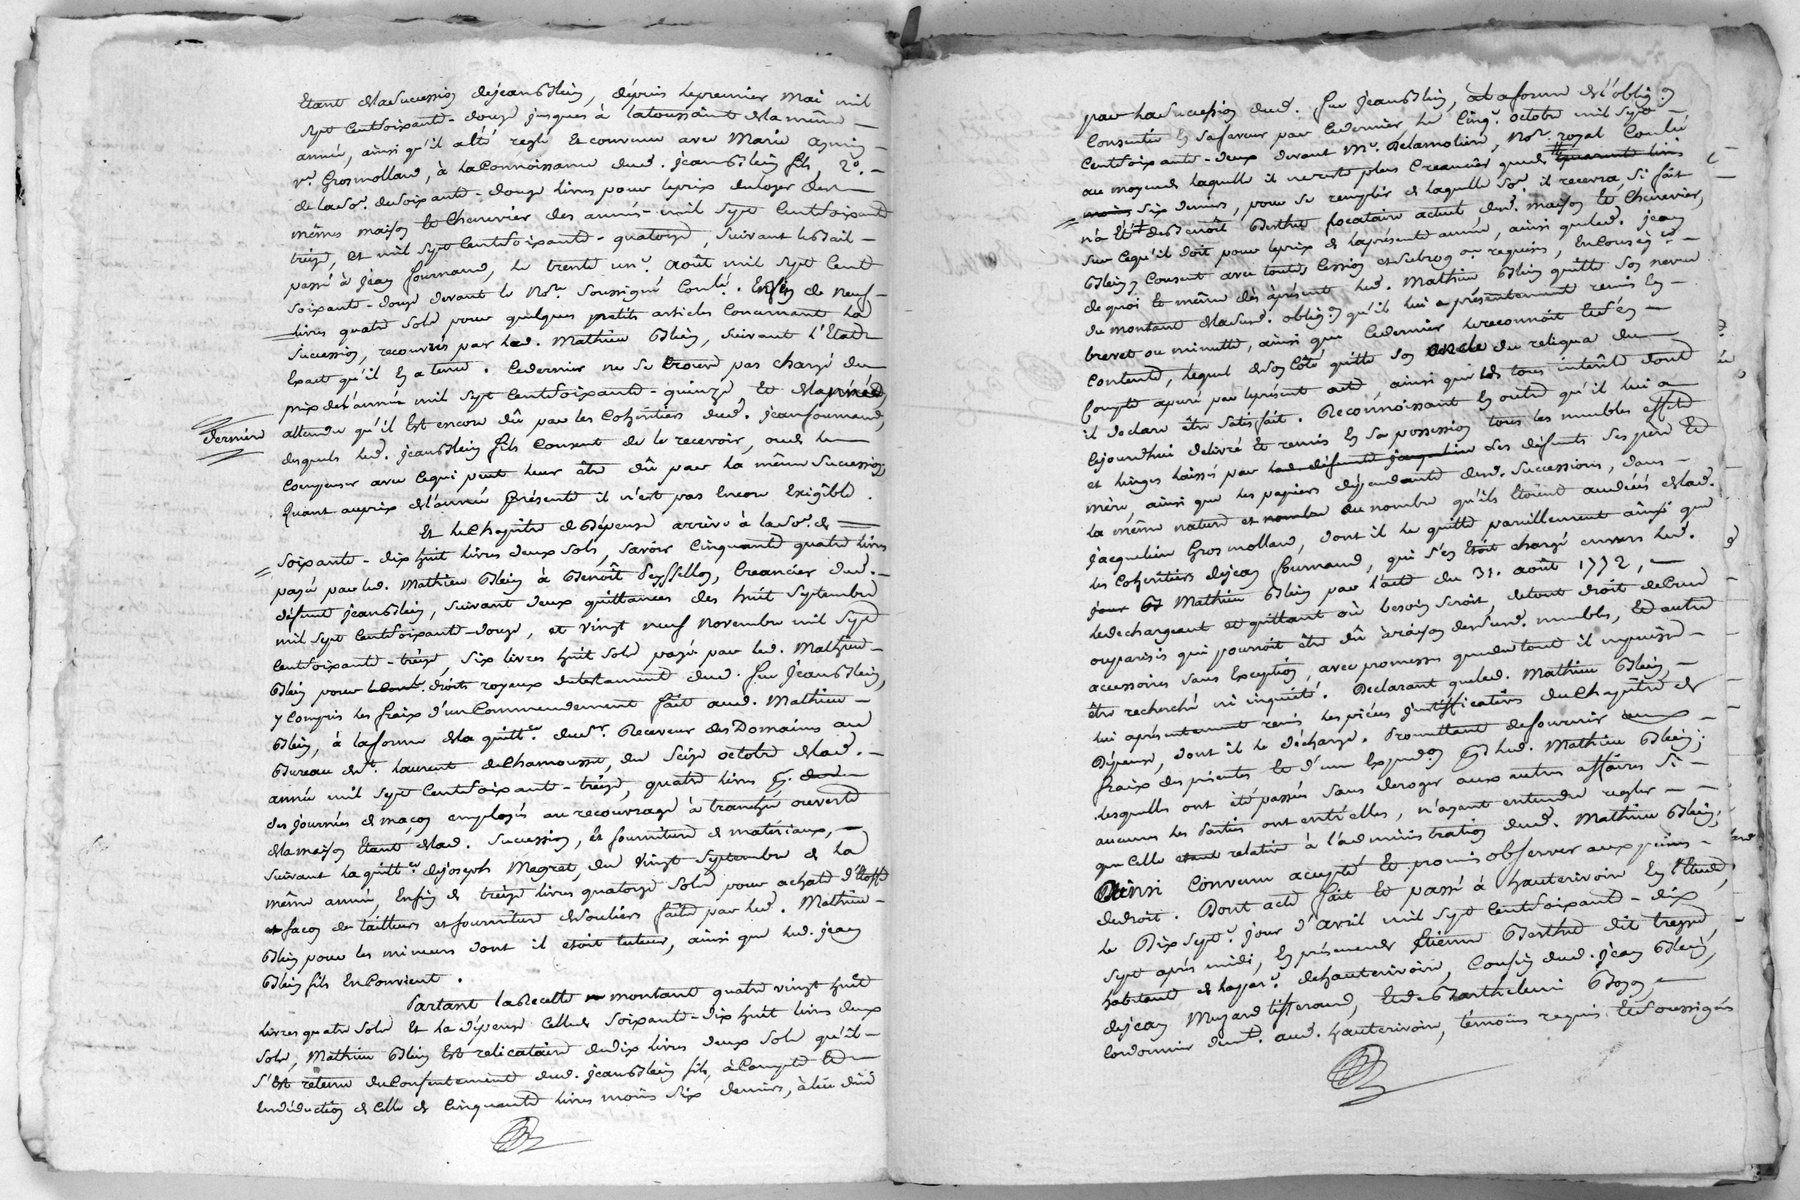 Etant de la succession de jean Blein, depuis le premier mai mil
sept cent soixante-douze jusques à la toussaint de la même
année, ainsi qu'il a été reglé et convenu avec Marie
ve. Grosmolland, à la connoissance dud. jean Blein fils 2°.
de la so.e de soixante-douze livres pour le prix du loyer des
mêmes maison et chenevier des années mil sept cent soixante
treize, et mil sept cent soixante-quatorze, suivant le bail
passé à jean fournand, le trente un e. août mil sept cent
soixante-douze devant le No.re soussigné Conlé. Enfin de neuf
livres quatre sols pour quelques petits articles concernant la
succession, recouvrés par led. Mathieu Blein, suivant l'Etat
exact qu'il en a tenu. Ce dernier ne se trouve pas chargé du
prix de l'année mil sept cent soixante-quinze, et
dernière
attendu qu'il est encore dû par les cohéritiers dud. jean fournand,
desquels led. jean Blein fils consent de le recevoir, ou de le
compenser avec ce qui peut leur être dû par la même succession,
Quant au prix de l'année présente il n'est pas encore exigible.
Et le chapitre de dépense arrive à la so.e de
soixante-dix huit livres deux sols, savoir cinquante quatre livres
payé par led. Mathieu Blein à Benoît Peyssellon, creancier dud.
défunt jean Blein, suivant deux quittances des huit septembre
mil sept cent soixante-douze, et vingt neuf novembre mil sept
cent soixante-treize, six livres huit sols payé par led. Mathieu
Blein pour droits royaux du testament dud. feu jean Blein,
y compris les fraix d'un commendement fait aud. Mathieu
Blein, à la forme de la quitt.ce du sr. Receveur des Domaines au
Bureau de St. laurent de Chamousset, du seize octobre de lad.
année mil sept cent soixante-treize, quatre livres
des journées de maçon employés au recouvrage à tranchée ouverte
de la maison étant de lad. succession, et fourniture de matériaux,
suivant la quitt.ce de joseph Magrat, du vingt septembre de la
même année, Enfin de treize livres quatorze sols pour achat d'étoffe
et façon de tailleurs et fourniture de souliers faite par led. Mathieu
Blein pour les mineurs dont il étoit tuteur, ainsi que led. jean
Blein fils en convient.
Partant la Recette montant quatre vingt huit
livres quatre sols Et la dépense celle de soixante-dix huit livres deux
sols, Mathieu Blein est relicataire de dix livres deux sols qu'il
s'est retenu du consentement dud. jean Blein fils, à compte et
en déduction de celle de cinquante livres moins six deniers, à lui due
par la succession dud. feu jean Blein, à la forme de l'oblig.on
consentie en sa faveur par ce dernier le cinq octobre mil sept
cent soixante-deux devant Me. Delamoliere, No.re royal Conlé
au moyen de laquelle il ne reste plus creancier que de quarante livres
moins six deniers, pour se remplir de laquelle so.e il recevra si fait
n'a été de Benoît Berthet locataire actuel desd. maison et chenevier,
sur ce qu'il doit pour le prix de la présente année, ainsi que led. jean
Blein y consent avec toutes cession et subrog.on requises, En conseq.ce
de quoi et même dès àprésent led. Mathieu Blein quitte son neveu
du montant de la susd. oblig.on qu'il lui a présentement remis en
brevet ou minutte, ainsi que ce dernier le reconnoit et s'en
contente, lequel de son côté quitte son oncle du reliqua du
compte apuré par le présent acte ainsi que de tous intérêts dont
il déclare être satisfait. Reconnoissant en outre qu'il lui a
cejourdhui délivré et remis en sa possession tous les meubles effets
et linges laissés par lad. défunte jacqueline Les défunts ses père et
mère, ainsi que les papiers dépendants desd. successions, dans
la même nature et nombre du nombre qu'ils étoient au décès de lad.
jacqueline Grosmolland, dont il le quitte pareillement ainsi que
les cohéritiers de jean fournand, qui s'en étoit chargé envers led.
jour Bl Mathieu Blein par l'acte du 31. août 1772,
le dechargeant et quittant où besoin seroit de tout droit de
ou parisis qui pourroit être dû à raison desd. susd. meubles, et autres
accessoires sans exception, avec promesses que du tout il ne puisse
être recherché ni inquiété. Declarant que led. Mathieu Blein,
lui a présentement remis les pièces justifficatives du chapitre de
dépense, dont il le décharge. Promettant de fournir aux
fraix des présentes et d'une exped.on led. Mathieu Blein;
lesquelles ont été passées sans deroger aux autres affaires si
aucunes les Parties ont entr'elles, n'ayant entendu regler
que celle etant relative à l'administration dud. Mathieu Blein;
Ainsi convenu accepté Et promis observer aux peines
de droit. Dont acte fait et passé à hauterivoire En l'Etude,
le Dix sept e. jour d'avril mil sept cent soixante-dix
sept après midi, En présence de Etienne Berthet dit treyve,
habitant de la par.e de hauterivoire, Cousin dud. jean Blein,
de jean Muzard tisserand, Et de Barthelemi Boyon
cordonnier dem.t aud. hauterivoire, témoins requis et soussignés